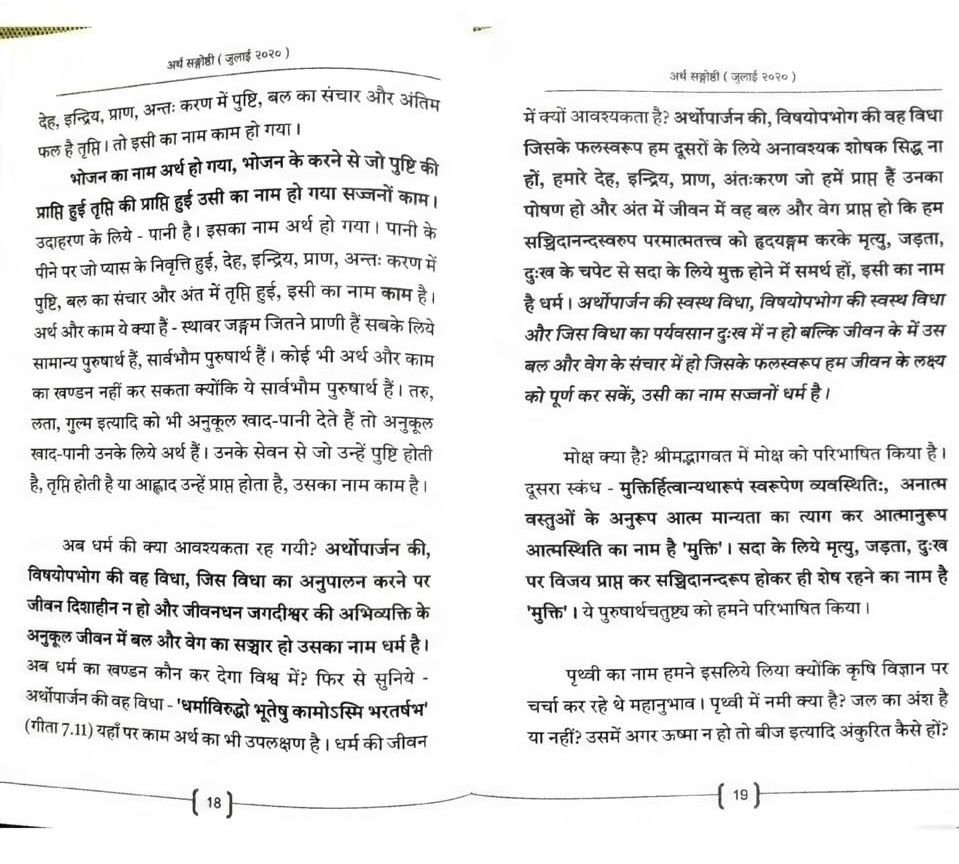 अर्थ सङ्गोष्ठी ( जुलाई २०२० )
देह, इन्द्रिय, प्राण, अन्तः करण में पुष्टि, बल का संचार और अंतिम
फल है तृप्ति । तो इसी का नाम काम हो गया ।
भोजन का नाम अर्थ हो गया, भोजन के करने से जो पुष्टि की
प्राप्ति हुई तृप्ति की प्राप्ति हुई उसी का नाम हो गया सज्जनों काम ।
उदाहरण के लिये - पानी है । इसका नाम अर्थ हो गया । पानी के
पीने पर जो प्यास के निवृत्ति हुई, देह, इन्द्रिय, प्राण, अन्तः करण में
पुष्टि, बल का संचार और अंत में तृप्ति हुई, इसी का नाम काम है ।
अर्थ और काम ये क्या हैं - स्थावर जङ्गम जितने प्राणी हैं सबके लिये
सामान्य पुरुषार्थ हैं, सार्वभौम पुरुषार्थ हैं । कोई भी अर्थ और काम
का खण्डन नहीं कर सकता क्योंकि ये सार्वभौम पुरुषार्थ हैं । तरु,
लता, गुल्म इत्यादि को भी अनुकूल खाद-पानी देते हैं तो अनुकूल
खाद-पानी उनके लिये अर्थ हैं । उनके सेवन से जो उन्हें पुष्टि होती
है, तृप्ति होती है या आह्लाद उन्हें प्राप्त होता है, उसका नाम काम है ।
अब धर्म की क्या आवश्यकता रह गयी? अर्थोपार्जन की,
विषयोपभोग की वह विधा, जिस विधा का अनुपालन करने पर
जीवन दिशाहीन न हो और जीवनधन जगदीश्वर की अभिव्यक्ति के
अनुकूल जीवन में बल और वेग का सञ्चार हो उसका नाम धर्म है ।
अब धर्म का खण्डन कौन कर देगा विश्व में? फिर से सुनिये -
अर्थोपार्जन की वह विधा - 'धर्माविरुद्धो भूतेषु कामोऽस्मि भरतर्षभ'
(गीता 7.11) यहाँ पर काम अर्थ का भी उपलक्षण है । धर्म की जीवन
18
अर्थ सङ्गोष्ठी ( जुलाई २०२० )
में क्यों आवश्यकता है? अर्थोपार्जन की, विषयोपभोग की वह विधा
जिसके फलस्वरूप हम दूसरों के लिये अनावश्यक शोषक सिद्ध ना
हों, हमारे देह, इन्द्रिय, प्राण, अंतःकरण जो हमें प्राप्त हैं उनका
पोषण हो और अंत में जीवन में वह बल और वेग प्राप्त हो कि हम
सच्चिदानन्दस्वरुप परमात्मतत्त्व को हृदयङ्गम करके मृत्यु, जड़ता,
दुःख के चपेट से सदा के लिये मुक्त होने में समर्थ हों, इसी का नाम
है धर्म । अर्थोपार्जन की स्वस्थ विधा, विषयोपभोग की स्वस्थ विधा
और जिस विधा का पर्यवसान दुःख में न हो बल्कि जीवन के में उस
बल और वेग के संचार में हो जिसके फलस्वरूप हम जीवन के लक्ष्य
को पूर्ण कर सकें, उसी का नाम सज्जनों धर्म है ।
मोक्ष क्या है? श्रीमद्भागवत में मोक्ष को परिभाषित किया है ।
दूसरा स्कंध - मुक्तिर्हित्वान्यथारूपं स्वरूपेण व्यवस्थितिः, अनात्म
वस्तुओं के अनुरूप आत्म मान्यता का त्याग कर आत्मानुरूप
आत्मस्थिति का नाम है 'मुक्ति' । सदा के लिये मृत्यु, जड़ता, दुःख
पर विजय प्राप्त कर सच्चिदानन्दरूप होकर ही शेष रहने का नाम है
'मुक्ति' । ये पुरुषार्थचतुष्टय को हमने परिभाषित किया ।
पृथ्वी का नाम हमने इसलिये लिया क्योंकि कृषि विज्ञान पर
चर्चा कर रहे थे महानुभाव । पृथ्वी में नमी क्या है? जल का अंश है
या नहीं? उसमें अगर ऊष्मा न हो तो बीज इत्यादि अंकुरित कैसे हों?
19